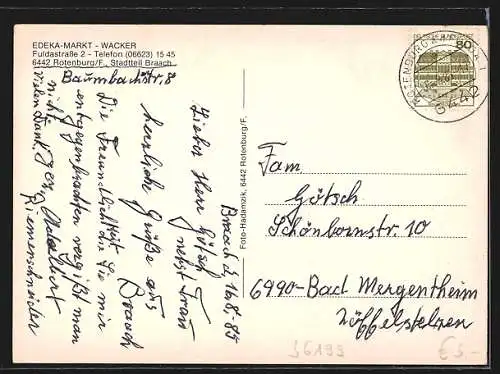 EDEKA-MARKT - WACKER
Fuldastraße 2 - Telefon (06623) 15 45
6442 Rotenburg/F., Stadtteil Braach
Baumbachstr. 8
Braach d. 16.8.85
Lieber Herr Götsch
nebst Frau
herzliche Grüße aus
Braach
Die Freundlichkeit die Sie mir
entgegenbrachten vergißt man
nicht.
Vielen Dank. Adalbert
Riemenschneider
Foto-Hadamzik, 6442 Rotenburg/F.
80
ROTENBURG A D FULDA 1
6442
Fam
Götsch
Schönbornstr. 10
6990-Bad Mergentheim
Löffelstelzen
S6199
€ 5-